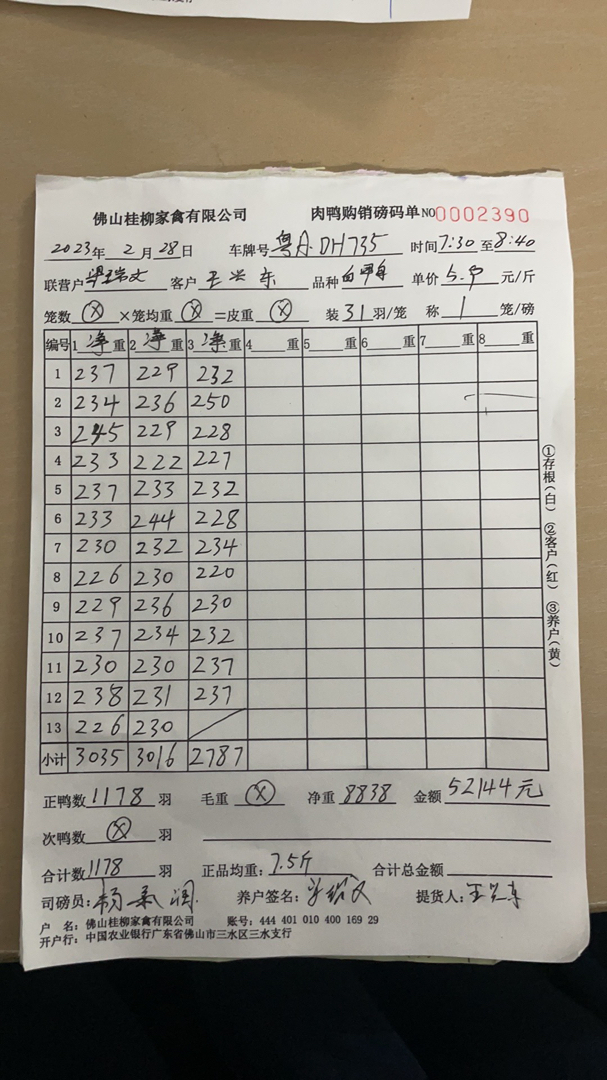 佛山桂柳家禽有限公司 肉鸭购销磅码单 NO 0002390
2023年 2月 28日 车牌号 粤A·DH735 时间 7:30 至 8:40
联营户 梁瑞文 客户 王兴东 品种 单价 5.9 元/斤
笼数 ⓧ ×笼均重 ⓧ =皮重 ⓧ 装 31 羽/笼 称 1 笼/磅
编号 1 净 重 2 净 重 3 净 重 4 重 5 重 6 重 7 重 8 重
1 237 229 232
2 234 236 250
3 245 229 228
4 233 222 227
5 237 233 232
6 233 244 228
7 230 232 234
8 226 230 220
9 229 236 230
10 237 234 232
11 230 230 237
12 238 231 237
13 226 230
小计 3035 3016 2787
①存根(白) ②客户(红) ③养户(黄)
正鸭数 1178 羽 毛重 ⓧ 净重 8838 金额 52144元
次鸭数 ⓧ 羽
合计数 1178 羽 正品均重: 7.5斤 合计总金额
司磅员: 杨 养户签名: 提货人: 王兴东
户 名: 佛山桂柳家禽有限公司 账号: 444 401 010 400 169 29
开户行: 中国农业银行广东省佛山市三水区三水支行